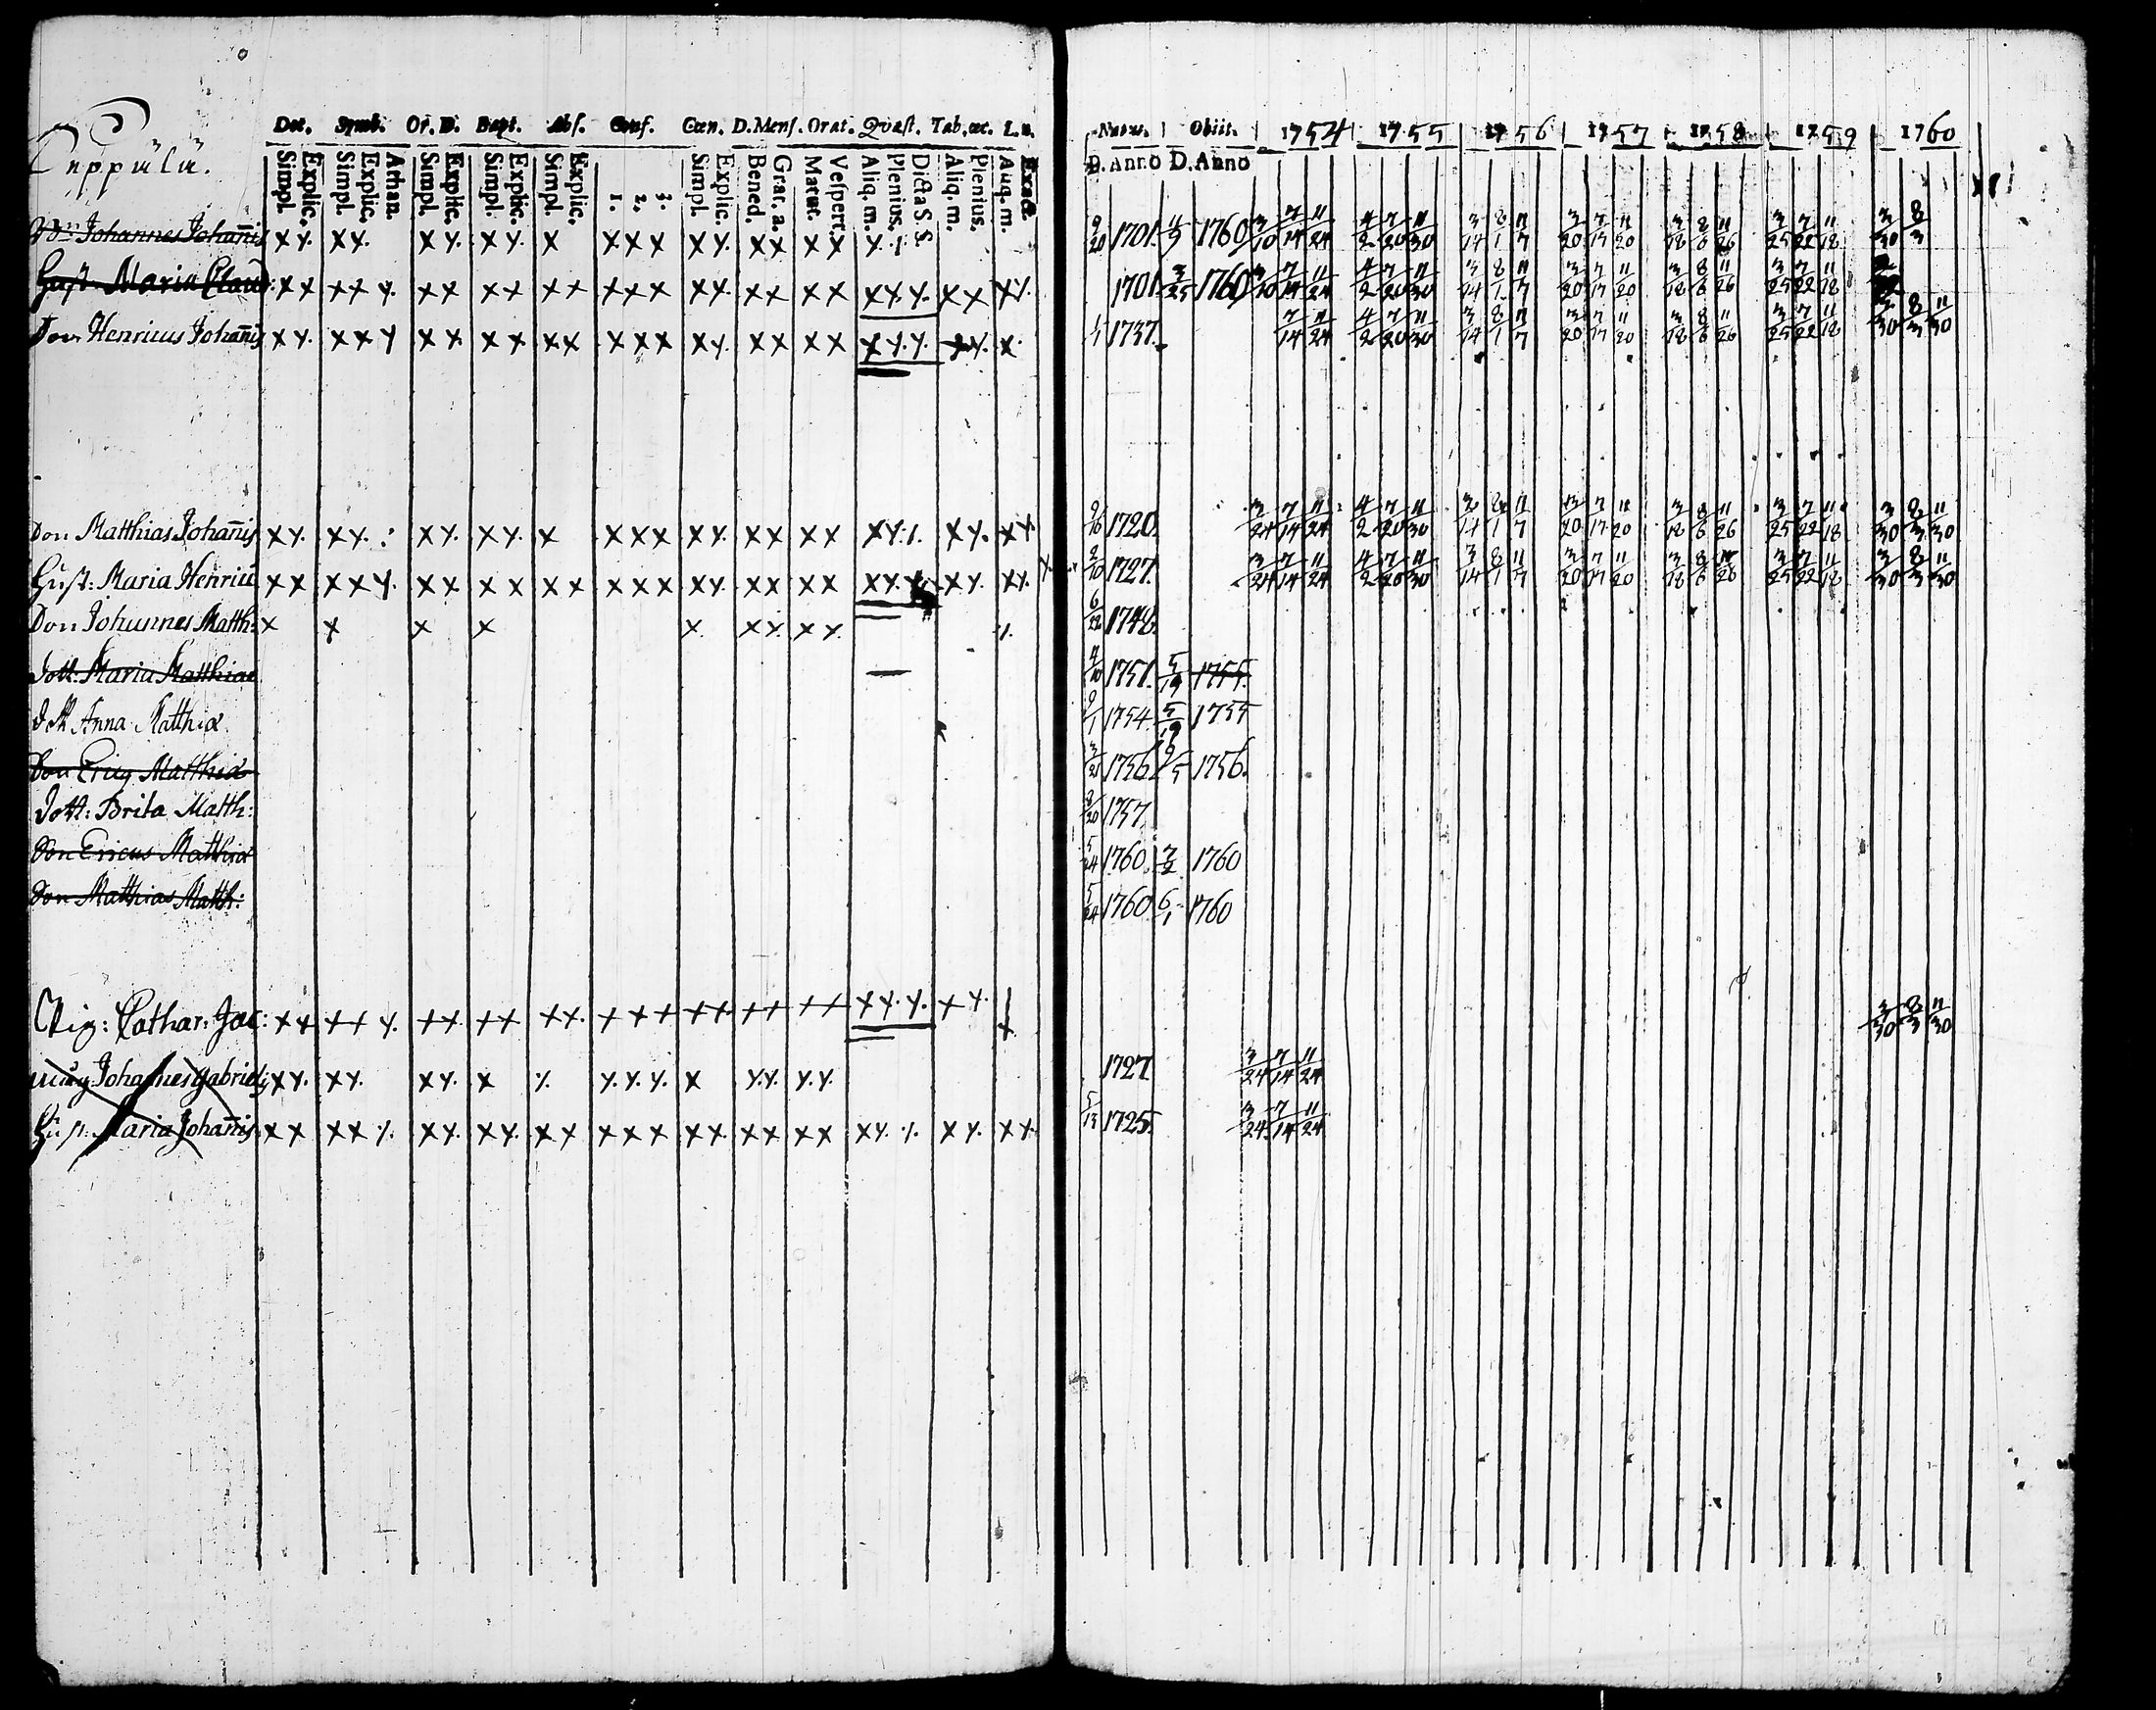 Det. Symb. Or. D. Bapt. Abs. Conf. Cœn. D. Mens. Orat. Qvæst. Tab. œc. L. n.
Seppülü.
Simpl. Explic. Simpl. Explic. Athan. Simpl. Explic. Simpl. Explic. Simpl. Explic. 1. 2. 3. Simpl. Explic. Bened. Grat. a. Matut. Vespert. Aliq. m. Plenius. Dicta S. S. Aliq. m. Plenius. Auq. m. Exacte
Natus. Obiit. 1754 1755 1756 1757 1758 1759 1760
D. Anno D. Anno
Johannes Johan̄is x y. x x. x y. x y. x x x x x y. x x x x x. 9/20 1701. 4/3 1760 3/10 7/14 11/24 4/2 7/20 11/30 3/14 8/1 11/7 3/20 7/17 11/20 3/18 8/6 11/26 3/25 7/22 11/18 3/30 8/3
Hust. Maria Claud: x x x x y. x x x x x x x x x x y. x x x x x y. y. x x x y. 1701. 3/25 1760 3/10 7/14 11/24 4/2 7/20 11/30 3/14 8/1 11/7 3/20 7/17 11/20 3/18 8/6 11/26 3/25 7/22 11/18
Son Henricus Johan̄is x y. x x y x x x x x x x x x x y. x x x x x y. y. x y. x. 1/1 1737. 7/14 11/24 4/2 7/20 11/30 3/14 8/1 11/7 3/20 7/17 11/20 3/18 8/6 11/26 3/25 7/22 11/18 3/30 8/3 11/30
Son Matthias Johan̄is x y. x y. x y. x y. x x x x x y. x x x x x y. x y. x y. 9/16 1720. 3/24 7/14 11/24 4/2 7/20 11/30 3/14 8/1 11/7 3/20 7/17 11/20 3/18 8/6 11/26 3/25 7/22 11/18 3/30 8/3 11/30
Hust: Maria Henrici x x x x y. x x x x x x x x x x y. x x x x x y. x y. x y. 2/10 1727. 3/24 7/14 11/24 4/2 7/20 11/30 3/14 8/1 11/7 3/20 7/17 11/20 3/18 8/6 11/26 3/25 7/22 11/18 3/30 8/3 11/30
Son Johannes Matth: x x x x x. x y. x y. 6/22 1748.
Dott: Maria Matthiae 1751. 5/19 1755.
Dott Anna Matthiæ. 9/1 1754 5/19 1755
Son Ericq Matthiæ 1756 9/5 1756.
Dott: Brita Matth: 1757
Son Ericus Matthiæ 5/24 1760. 7/2 1760
Son Matthias Matth: 5/24 1760 6/1 1760
Pig: Cathar: Jac: x x x x y. x x. x x x x. x x x x x x x x x x y. y. x y. 3/30 8/3 11/30
Johannes Gabrielis x y. x y. x y. x y. y. y. y. x y. y. y. y. 1727 3/24 7/14 11/24
Hust: Maria Johan̄is x x x x y. x y. x y. x x x x x x x. x x x x x y. x y. x y. 5/13 1725. 3/24 7/14 11/24